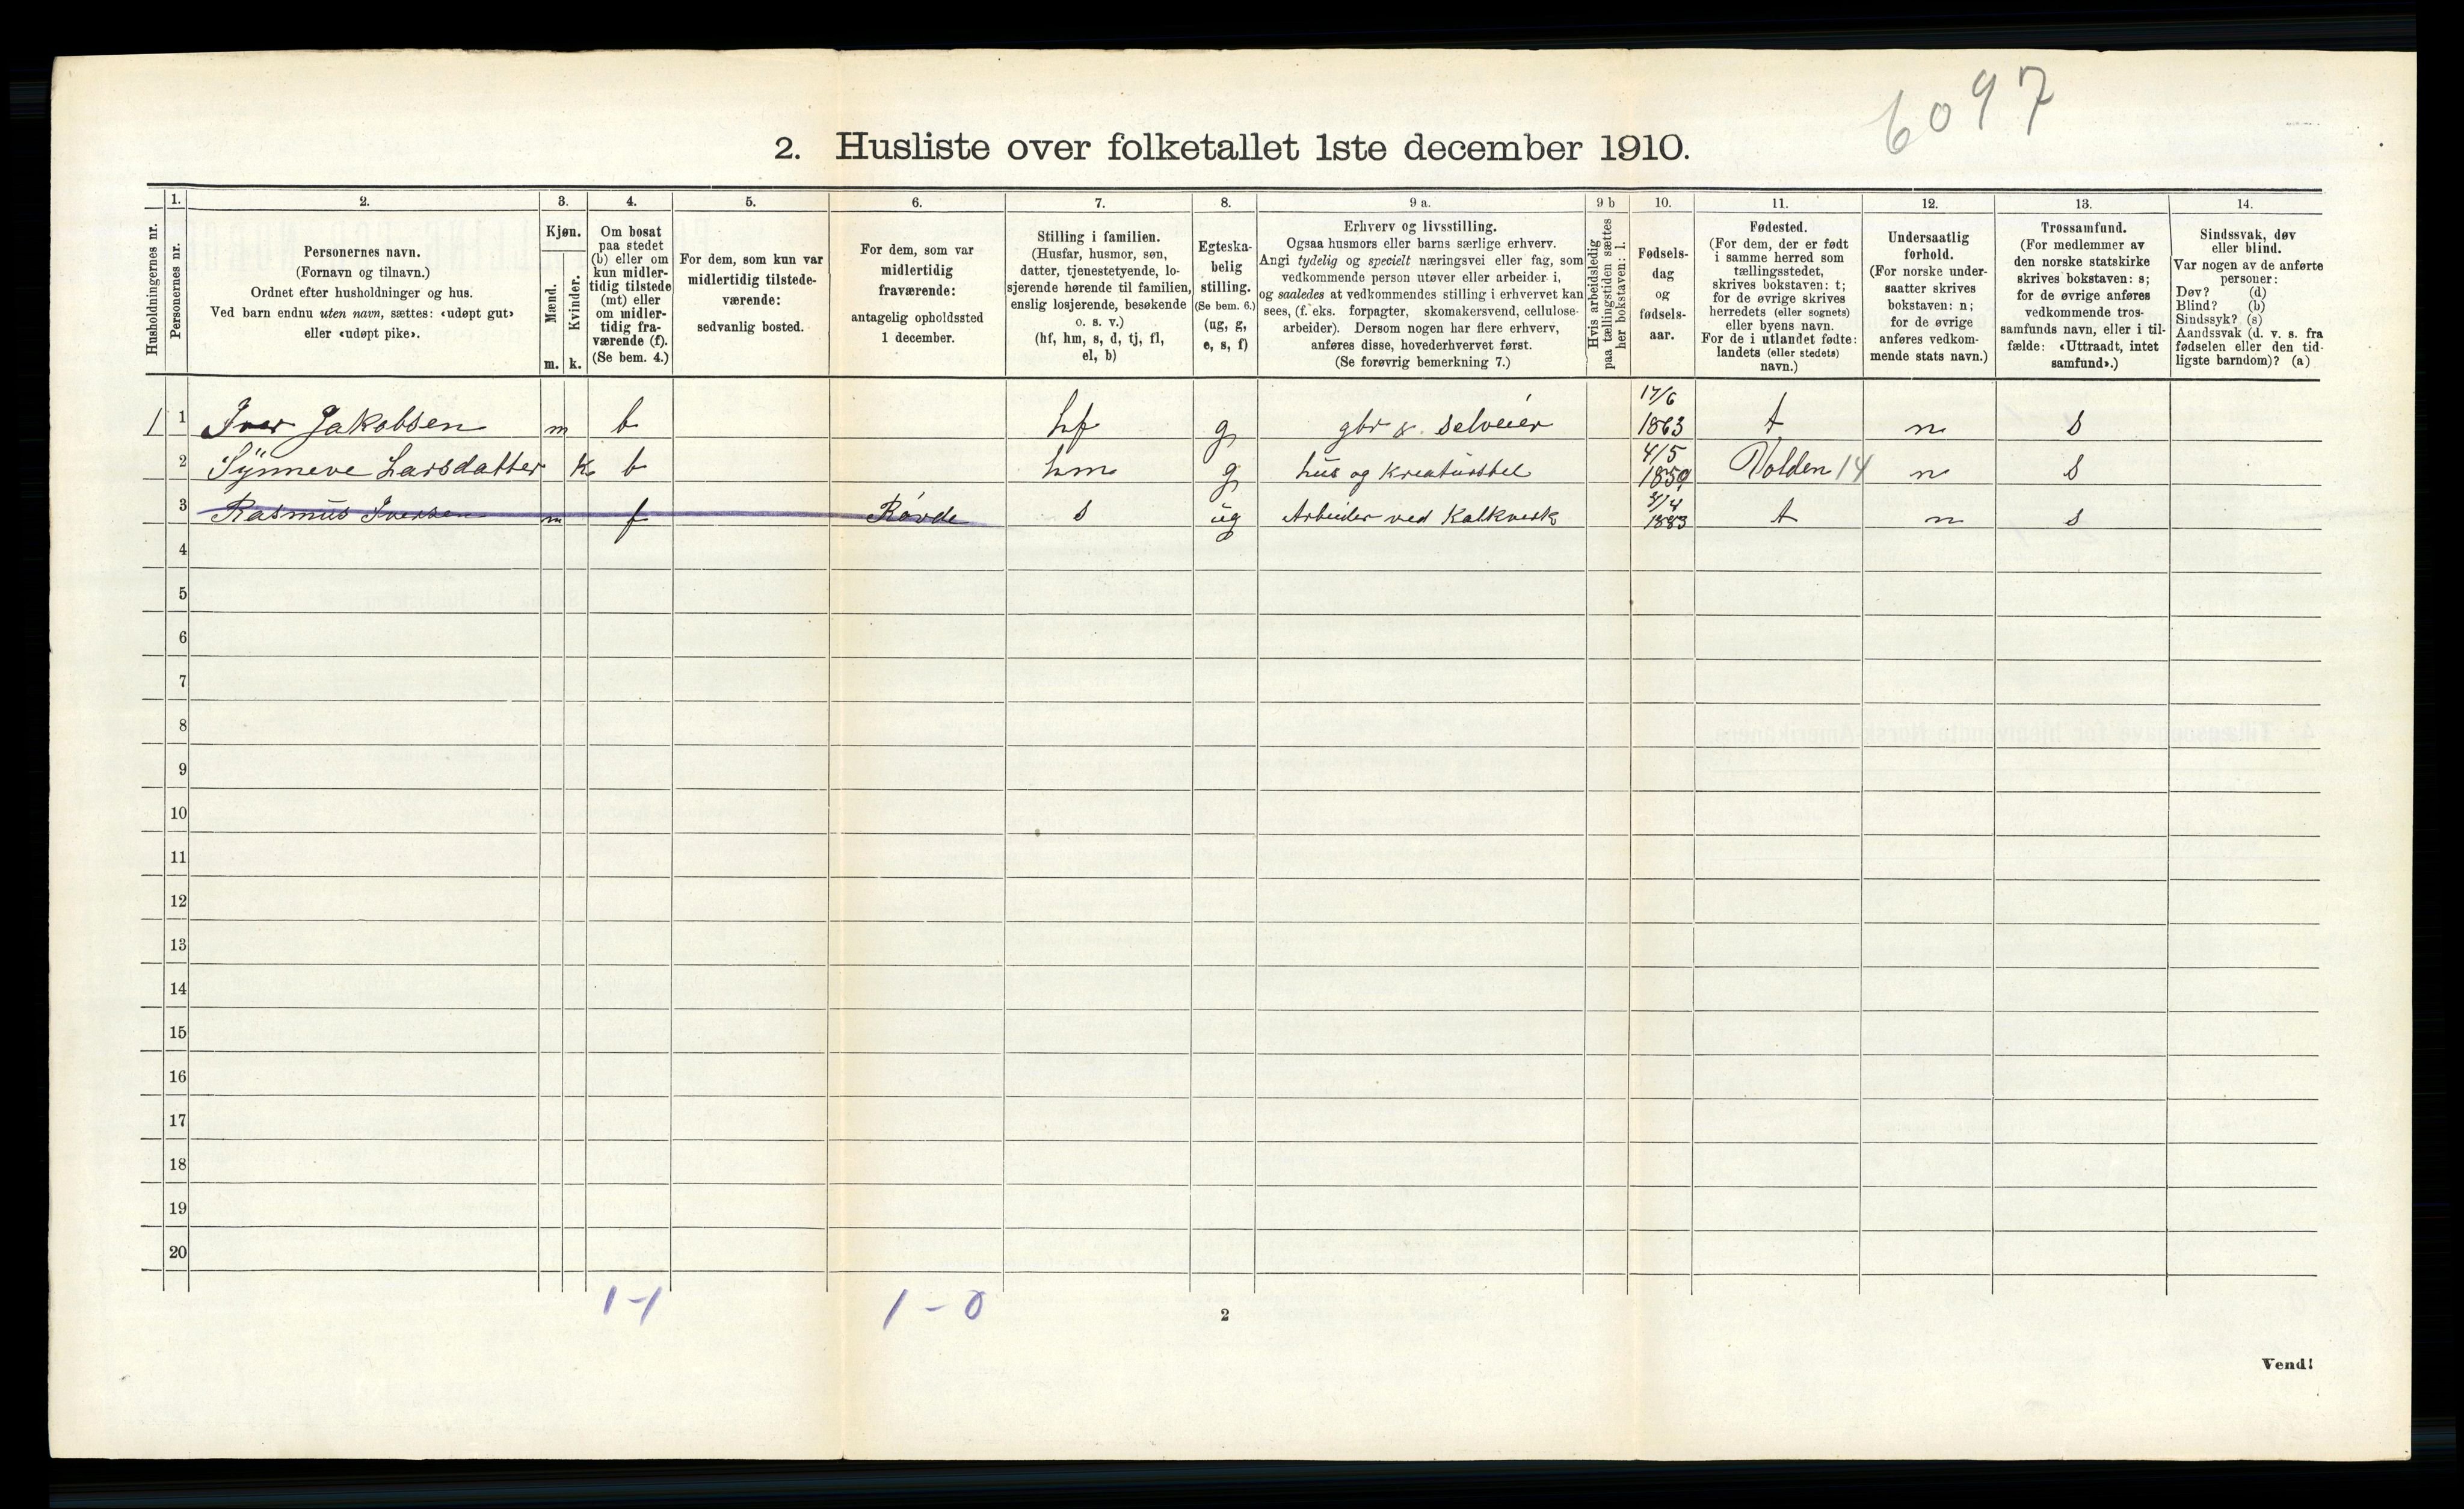 6097
2. Husliste over folketallet 1ste december 1910.
Husholdningernes nr.
1. Personernes nr.
2. Personernes navn.
(Fornavn og tilnavn.)
Ordnet efter husholdninger og hus.
Ved barn endnu uten navn, sættes: «udøpt gut»
eller «udøpt pike».
3. Kjøn.
Mænd. Kvinder.
m. k.
4. Om bosat
paa stedet
(b) eller om
kun midler-
tidig tilstede
(mt) eller
om midler-
tidig fra-
værende (f).
(Se bem. 4.)
5. For dem, som kun var
midlertidig tilstede-
værende:
sedvanlig bosted.
6. For dem, som var
midlertidig
fraværende:
antagelig opholdssted
1 december.
7. Stilling i familien.
(Husfar, husmor, søn,
datter, tjenestetyende, lo-
sjerende hørende til familien,
enslig losjerende, besøkende
o. s. v.)
(hf, hm, s, d, tj, fl,
el, b)
8. Egteska-
belig
stilling.
(Se bem. 6.)
(ug, g,
e, s, f)
9 a. Erhverv og livsstilling.
Ogsaa husmors eller barns særlige erhverv.
Angi tydelig og specielt næringsvei eller fag, som
vedkommende person utøver eller arbeider i,
og saaledes at vedkommendes stilling i erhvervet kan
sees, (f. eks. forpagter, skomakersvend, cellulose-
arbeider). Dersom nogen har flere erhverv,
anføres disse, hovederhvervet først.
(Se forøvrig bemerkning 7.)
9 b Hvis arbeidsledig
paa tællingstiden sættes
her bokstaven: l.
10. Fødsels-
dag
og
fødsels-
aar.
11. Fødested.
(For dem, der er født
i samme herred som
tællingsstedet,
skrives bokstaven: t;
for de øvrige skrives
herredets (eller sognets)
eller byens navn.
For de i utlandet fødte:
landets (eller stedets)
navn.)
12. Undersaatlig
forhold.
(For norske under-
saatter skrives
bokstaven: n;
for de øvrige
anføres vedkom-
mende stats navn.)
13. Trossamfund.
(For medlemmer av
den norske statskirke
skrives bokstaven: s;
for de øvrige anføres
vedkommende tros-
samfunds navn, eller i til-
fælde: «Uttraadt, intet
samfund».)
14. Sindssvak, døv
eller blind.
Var nogen av de anførte
personer:
Døv? (d)
Blind? (b)
Sindssyk? (s)
Aandssvak (d. v. s. fra
fødselen eller den tid-
ligste barndom)? (a)
1 1 Iver Jakobsen m b hf g gbr & selveier 17/6 1863 t n s
2 Synneve Larsdatter k b hm g hus og kreaturstel 4/5 1859 Volden 14 n s
3 Rasmus Iversen m f Røvde s ug Arbeider ved Kalkverk 1883 t n s
4
5
6
7
8
9
10
11
12
13
14
15
16
17
18
19
20
1-1 1-0
2
Vend!